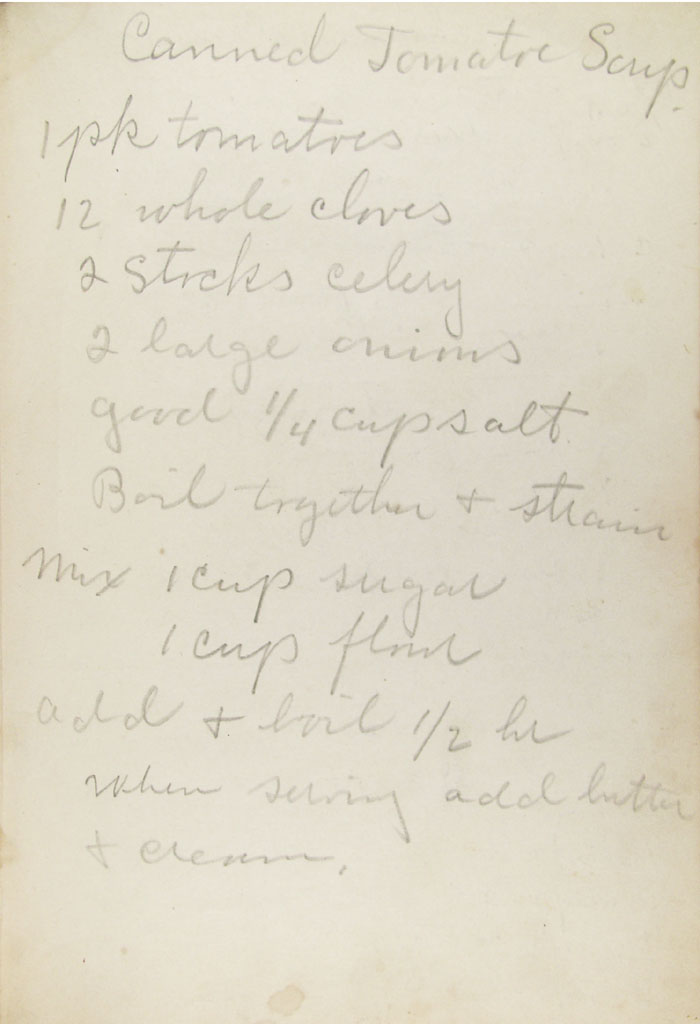 Canned Tomatoe Soup.
1 pk tomatoes
12 whole cloves
2 Stocks celery
2 large onions
good 1/4 cup salt
Boil together + strain
Mix 1 cup sugar
1 cup flour
add + boil 1/2 hr
when serving add butter
+ cream.